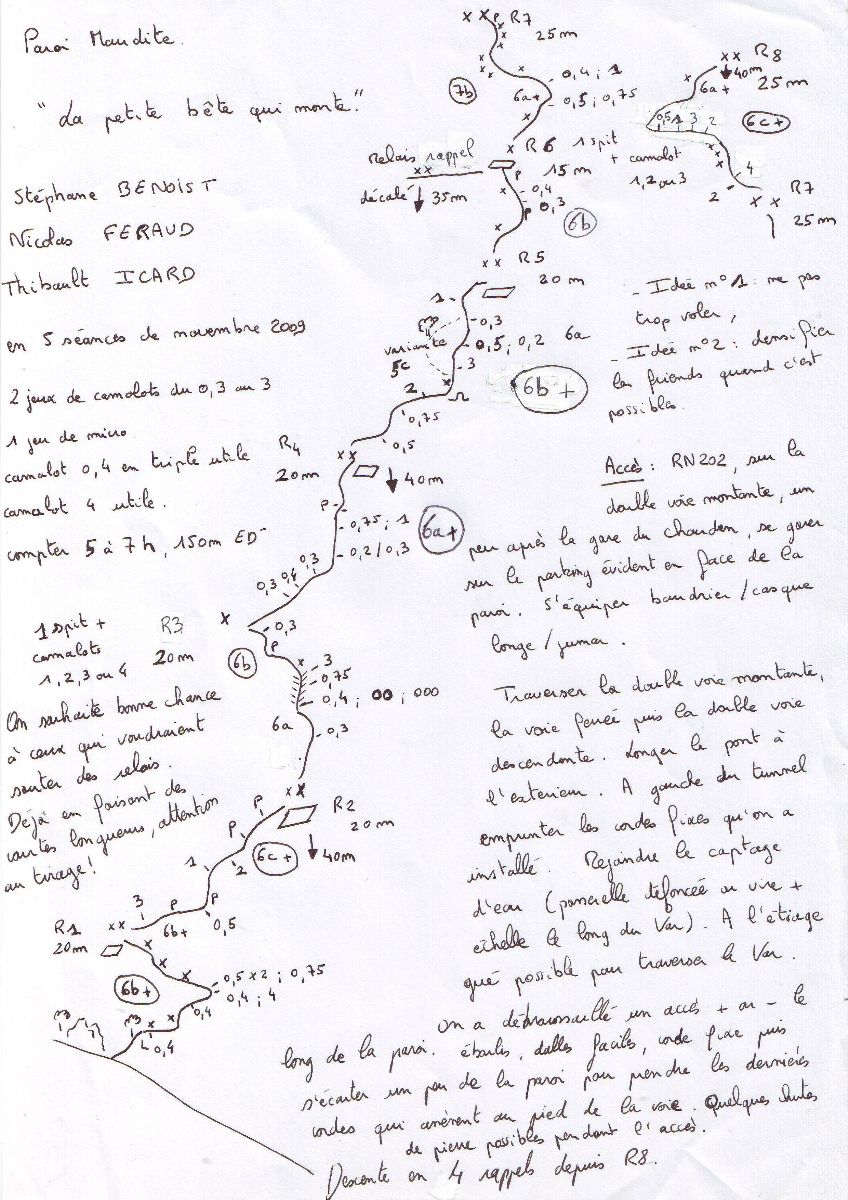 Paroi Maudite.
"La petite bête qui monte."
Stéphane BENOIST
Nicolas FERAUD
Thibault ICARD
en 5 séances de novembre 2009
2 jeux de camalots du 0,3 au 3
1 jeu de micro
camalot 0,4 en triple utile
camalot 4 utile.
compter 5 à 7h, 150m ED-
1 spit +
camalots
1, 2, 3 ou 4
R3
20m
On souhaite bonne chance
à ceux qui voudraient
sauter des relais.
Déjà en faisant des
courtes longueurs, attention
au tirage!
x x P R7
25m
7b
0,4 ; 1
6a+
0,5 ; 0,75
x R6 1 spit
15m + camalot
1, 2 ou 3
Relais rappel
x x
décalé 35m
P
0,4
P 0,3
6b
x x R5
20m
1
0,3
variante
5c
0,5 ; 0,2 6a
3
6b+
2
0,75
0,5
R4
20m
x x
40m
P
0,75 ; 1
6a+
0,2 / 0,3
0,3 0,4 0,3
x
0,3
P
6b
3
0,75
0,4 ; 00 ; 000
6a
0,3
x x
R2
20m
P
P
P
40m
1
2
6c+
3
P
P
R1
20m
x x
6b+
0,5
6b+
0,5 x 2 ; 0,75
0,4 ; 4
0,4
0,4
x x R8
40m
6a+ 25m
0,5 1 3 2
6c+
4
2
x x
R7
25m
- Idée n° 1 : ne pas
trop voler,
- Idée n° 2 : densifier
les friends quand c'est
possibles.
Accès : RN202, sur la
double voie montante, un
peu après la gare du chaudan, se garer
sur le parking évident en face de la
paroi. S'équiper baudrier / casque
longe / jumar.
Traverser la double voie montante,
la voie ferrée puis la double voie
descendante. Longer le pont à
l'exterieur. A gauche du tunnel
emprunter les cordes fixes qu'on a
installé. Rejoindre le captage
d'eau (passerelle défoncée ou vire +
echelle le long du Var). A l'étiage
gué possible pour traverser le Var.
On a débroussaillé un accès + ou - le
long de la paroi. éboulis, dalles faciles, corde fixe puis
s'écarter un peu de la paroi pour prendre les dernières
cordes qui amènent au pied de la voie. Quelques chutes
de pierre possibles pendant l'accès.
Descente en 4 rappels depuis R8.